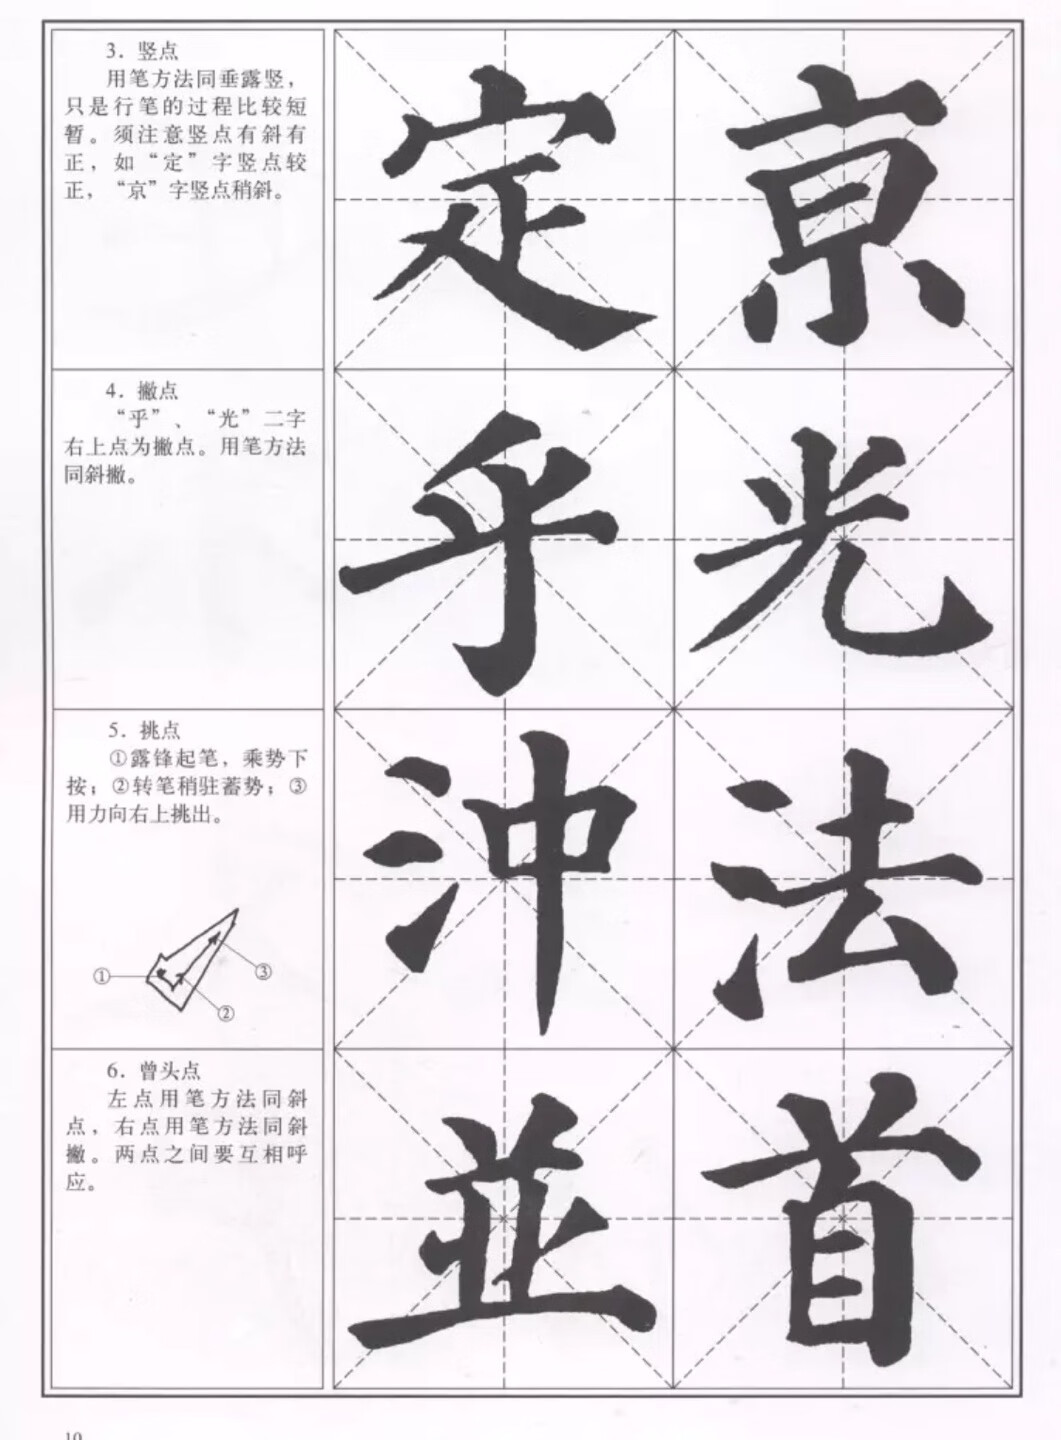 3．竖点
用笔方法同垂露竖，
只是行笔的过程比较短
暂。须注意竖点有斜有
正，如“定”字竖点较
正，“京”字竖点稍斜。
定 京
4．撇点
“乎”、“光”二字
右上点为撇点。用笔方法
同斜撇。
乎 光
5．挑点
①露锋起笔，乘势下
按；②转笔稍驻蓄势；③
用力向右上挑出。
①
③
②
冲 法
6．曾头点
左点用笔方法同斜
点，右点用笔方法同斜
撇。两点之间要互相呼
应。
並 首
10